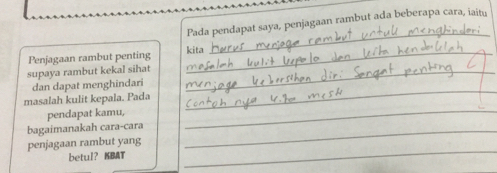 Penjagaan rambut penting
supaya rambut kekal sihat
dan dapat menghindari
masalah kulit kepala. Pada
pendapat kamu,
bagaimanakah cara-cara
penjagaan rambut yang
betul? KBAT
Pada pendapat saya, penjagaan rambut ada beberapa cara, iaitu
kita harus menjaga rambut untuk menghindari
masalah kulit kepala dan kita hendaklah
menjaga kebersihan diri sangat penting
contoh nya kita mesti